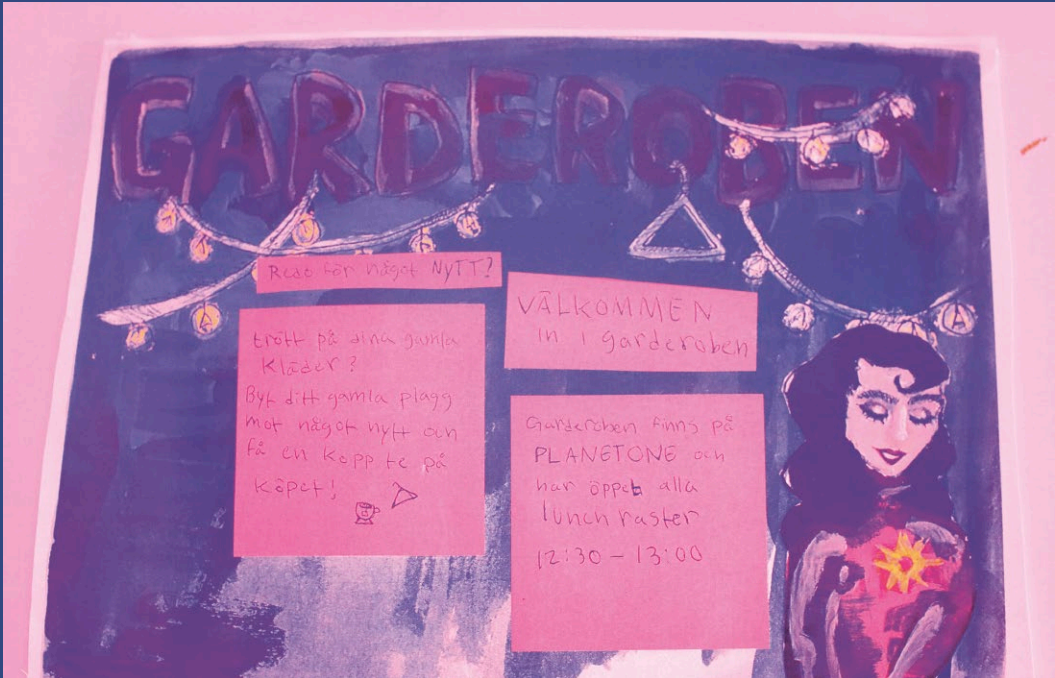 GARDEROBEN
Redo för något NYTT?
trött på dina gamla
kläder?
Byt ditt gamla plagg
mot något nytt och
få en kopp te på
köpet!
VÄLKOMMEN
in i garderoben
Garderoben finns på
PLANETONE och
har öppet alla
lunchraster
12:30 – 13:00